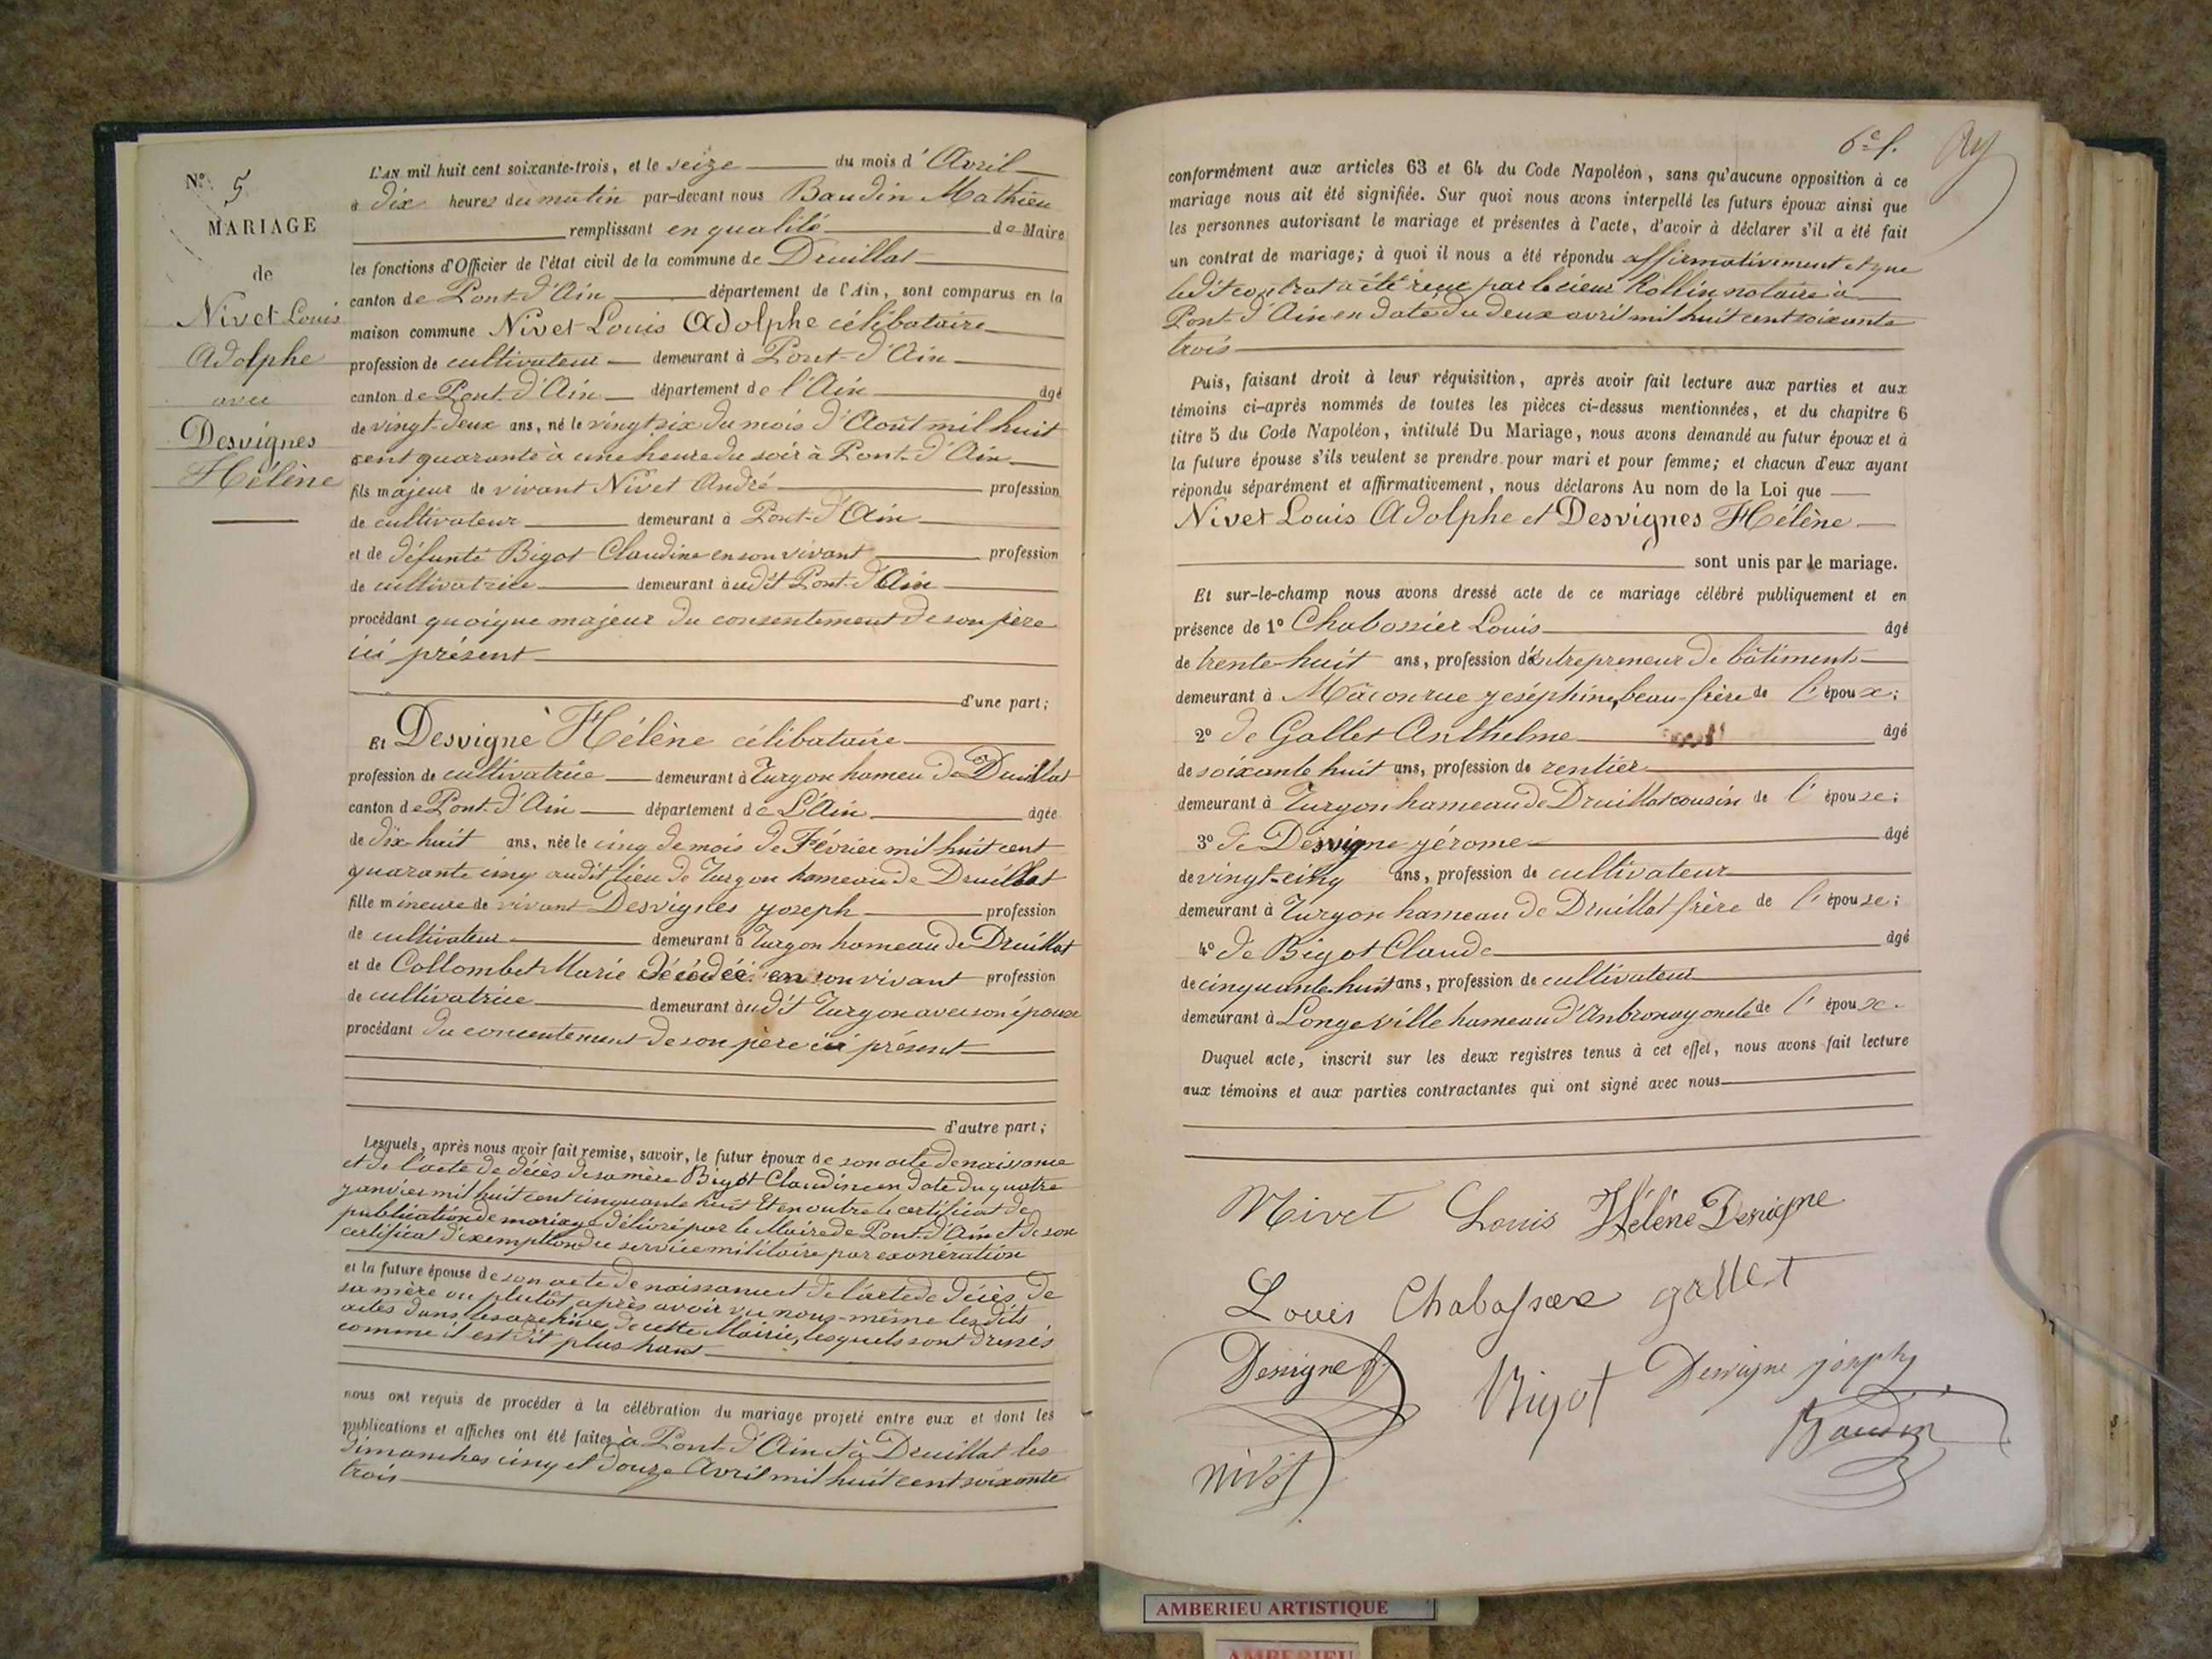 N° 5
MARIAGE
de
Nivet Louis
Adolphe
avec
Desvignes
Hélène
L'AN mil huit cent soixante-trois, et le seize du mois d'Avril
à dix heures du matin par-devant nous Baudin Mathieu
remplissant en qualité de Maire
les fonctions d'Officier de l'état civil de la commune de Druillat
canton de Pont-d'Ain département de l'Ain, sont comparus en la
maison commune Nivet Louis Adolphe célibataire
profession de cultivateur demeurant à Pont-d'Ain
canton de Pont-d'Ain département de l'Ain âgé
de vingt-deux ans, né le vingt six du mois d'Août mil huit
cent quarante à une heure du soir à Pont-d'Ain
fils majeur de vivant Nivet André profession
de cultivateur demeurant à Pont-d'Ain
et de défunte Bigot Claudine en son vivant profession
de cultivatrice demeurant audit Pont-d'Ain
procédant quoique majeur du consentement de son père
ici présent
d'une part;
Et Desvigne Hélène célibataire
profession de cultivatrice demeurant à Turgon hameu de Druillat
canton de Pont-d'Ain département de L'Ain âgée
de dix huit ans, née le cinq de mois de Février mil huit cent
quarante cinq audit lieu de Turgon hameau de Druillat
fille mineure de vivant Desvignes joseph profession
de cultivateur demeurant à Turgon hameau de Druillat
et de Collombet Marie décédée en son vivant profession
de cultivatrice demeurant audit Turgon avec son époux
procédant du concentement de son père ici présent
d'autre part;
Lesquels, après nous avoir fait remise, savoir, le futur époux de son acte de naissance
et de l'acte de décès de sa mère Bigot Claudine en date du quatre
janvier mil huit cent cinquante huit Et en outre le certificat de
publication de mariage délivré par le Maire de Pont-d'Ain et de son
certificat d'exemption du service militaire par exonération
et la future épouse de son acte de naissance et de l'acte de décès de
sa mère ou plutôt après avoir vu nous-même les dits
actes dans les archives de cette Mairie, lesquels sont dressés
comme il est dit plus haut
nous ont requis de procéder à la célébration du mariage projeté entre eux et dont les
publications et affiches ont été faites à Pont-d'Ain et à Druillat les
dimanches cinq et douze Avril mil huit cent soixante
trois
6e f.
conformément aux articles 63 et 64 du Code Napoléon, sans qu'aucune opposition à ce
mariage nous ait été signifiée. Sur quoi nous avons interpellé les futurs époux ainsi que
les personnes autorisant le mariage et présentes à l'acte, d'avoir à déclarer s'il a été fait
un contrat de mariage; à quoi il nous a été répondu affirmativement et que
ledit contrat a été reçu par le cieur Rollin notaire à
Pont-d'Ain en date du deux avril mil huit cent soixante
trois
Puis, faisant droit à leur réquisition, après avoir fait lecture aux parties et aux
témoins ci-après nommés de toutes les pièces ci-dessus mentionnées, et du chapitre 6
titre 5 du Code Napoléon, intitulé Du Mariage, nous avons demandé au futur époux et à
la future épouse s'ils veulent se prendre pour mari et pour femme; et chacun d'eux ayant
répondu séparément et affirmativement, nous déclarons Au nom de la Loi que
Nivet Louis Adolphe et Desvignes Hélène
sont unis par le mariage.
Et sur-le-champ nous avons dressé acte de ce mariage célébré publiquement et en
présence de 1° Chabossier Louis âgé
de trente huit ans, profession d'entrepreneur de bâtiments
demeurant à Mâcon rue joséphine, beau-frère de l'époux;
2° de Gallet Anthelme âgé
de soixante huit ans, profession de rentier
demeurant à Turgon hameau de Druillat cousin de l'épouse;
3° de Desvigne jérome âgé
de vingt-cinq ans, profession de cultivateur
demeurant à Turgon hameau de Druillat frère de l'épouse;
4° de Bigot Claude âgé
de cinquante-huit ans, profession de cultivateur
demeurant à Longeville hameau d'Anbronay oncle de l'époux.
Duquel acte, inscrit sur les deux registres tenus à cet effet, nous avons fait lecture
aux témoins et aux parties contractantes qui ont signé avec nous
Nivet Louis Hélène Desvigne
Louis Chabassier gallet
Desvigne Bigot Desvigne joseph
Baudin
nivet
AMBERIEU ARTISTIQUE
AMBERIEU